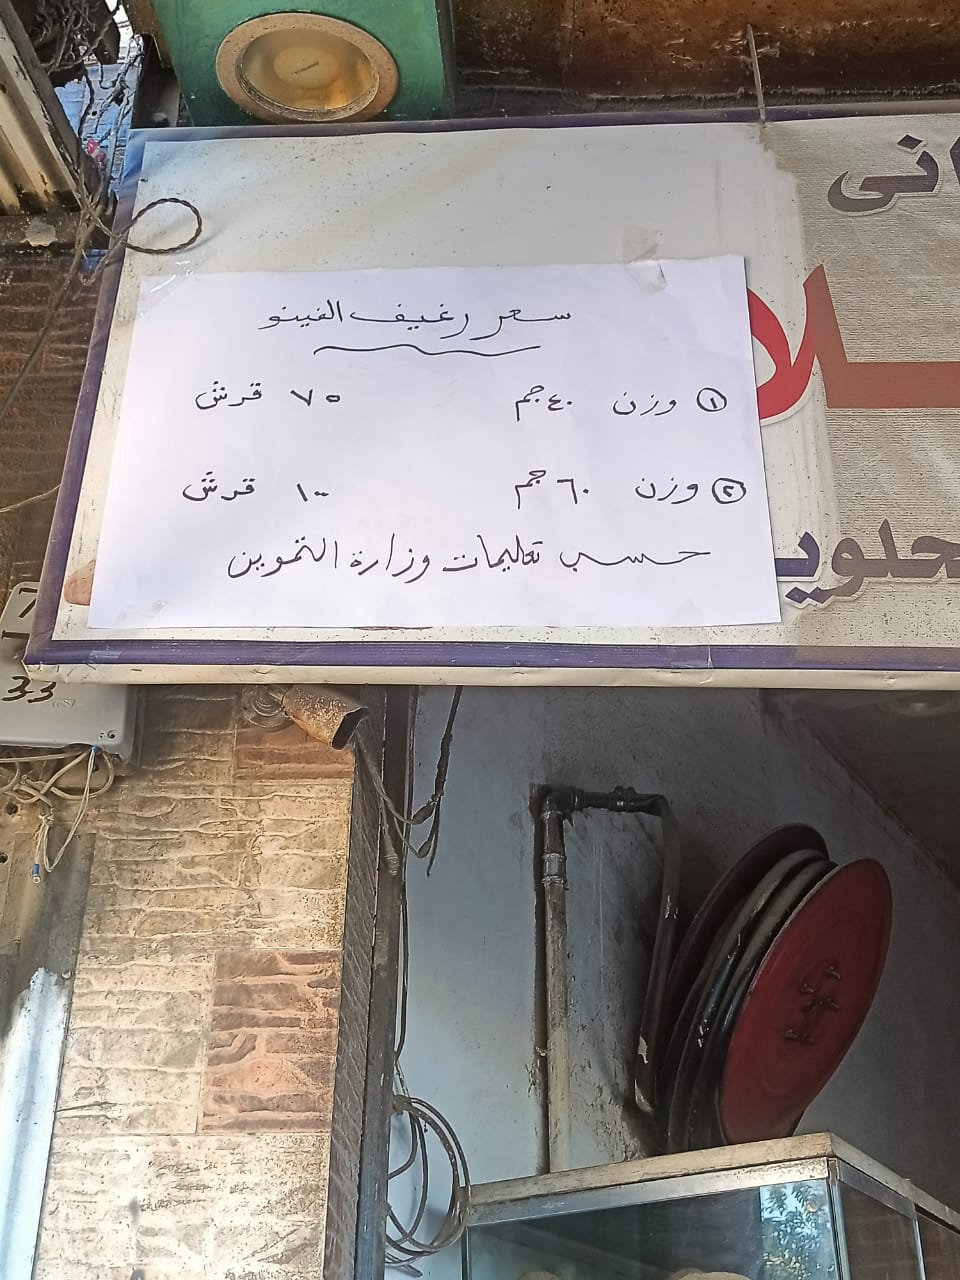 سعر رغيف الفينو
① وزن ٤٠ جم ٧٥ قرش
② وزن ٦٠ جم ١٠٠ قرش
حسب تعليمات وزارة التموين
33